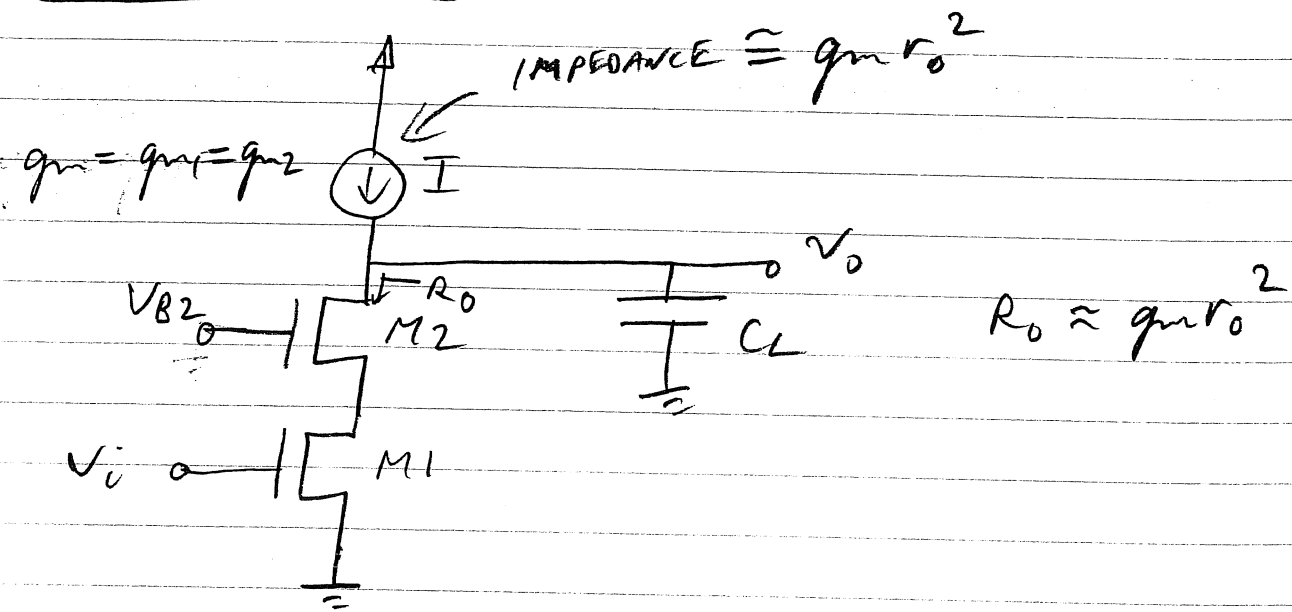 IMPEDANCE ≅ gm ro²
gm = gm1 = gm2
I
Vo
Ro
VB2
M2
CL
Ro ≈ gm ro²
Vi
M1